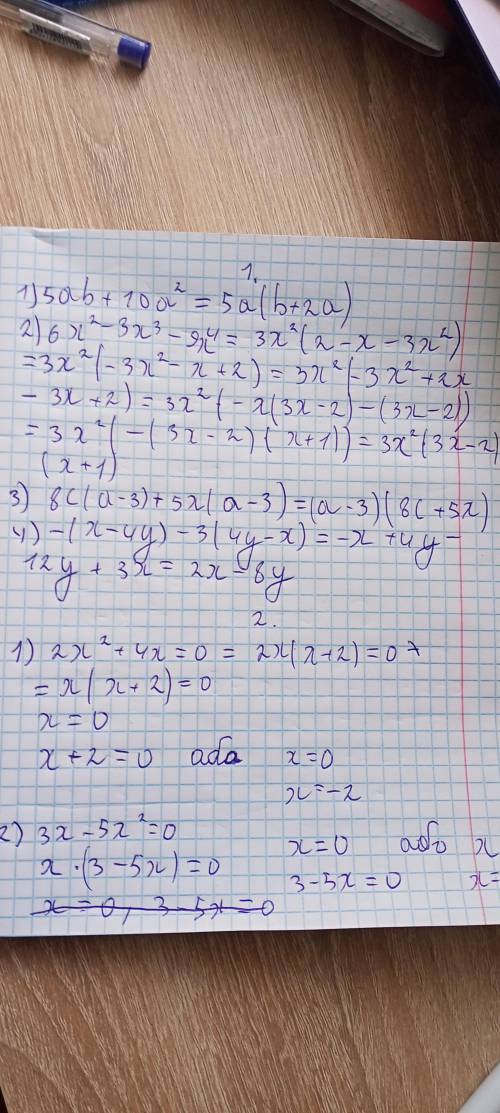 1.
1) 5ab + 10a² = 5a(b+2a)
2) 6x² - 3x³ - 9x⁴ = 3x²(2 - x - 3x²)
= 3x²(-3x² - x + 2) = 3x²(-3x² + 2x
- 3x + 2) = 3x²(-x(3x - 2) - (3x - 2))
= 3x²(-(3x - 2)(x+1)) = 3x²(3x - 2)
(x+1)
3) 8c(a-3) + 5x(a-3) = (a-3)(8c+5x)
4) -(x-4y) - 3(4y-x) = -x + 4y -
12y + 3x = 2x - 8y
2.
1) 2x² + 4x = 0 = 2x(x+2) = 0
= x(x+2) = 0
x = 0
x + 2 = 0 або x = 0
x = -2
2) 3x - 5x² = 0 x = 0 або x
x · (3 - 5x) = 0 3 - 5x = 0 x =
x = 0, 3 - 5x = 0